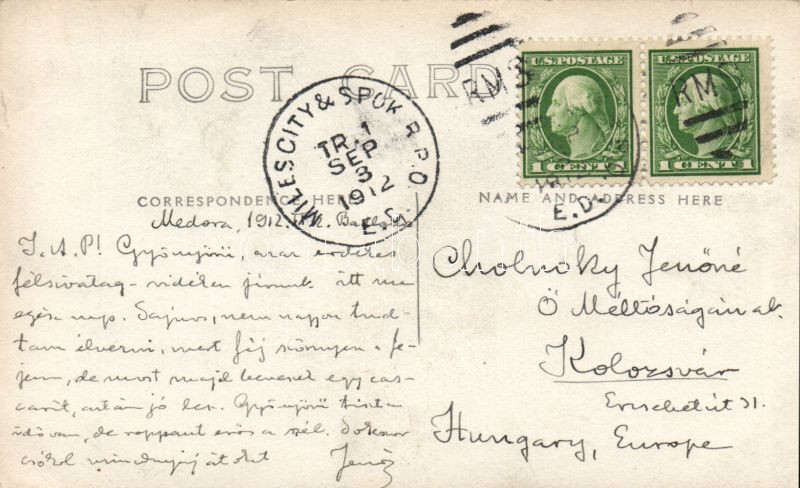 POST CARD
MILES CITY & SPOK. R.P.O.
TR. 1
SEP
3
1912
E.D.
RMS
RMS
U.S. POSTAGE
U.S. POSTAGE
1 CENT 1
1 CENT 1
E.D.
CORRESPONDENCE HERE
NAME AND ADDRESS HERE
Medora, 1912.
I. A. P! Gyönyörű, azaz érdekes
félsivatag-vidéken járunk itt ma
egész nap. Sajnos, nem nagyon tud-
tam élvezni, mert fáj szörnyen a fe-
jem, de most majd beveszek egy cas-
carit, aztán jó lesz. Gyönyörű tiszta
idő van, de roppant erős a szél. Sokszor
csókol mindnyájatokat
Jenő
Cholnoky Jenőné
Ő Méltóságának
Kolozsvár
Erzsébet út 31.
Hungary, Europe